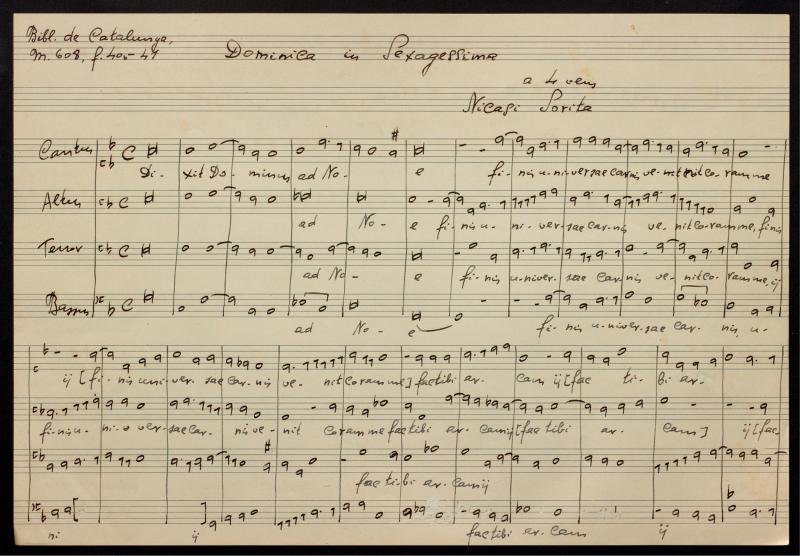 Bibl. de Catalunya,
M. 608, f. 40v-47
Dominica in Sexagessima
a 4 veus
Nicasi Sorita
Cantus
Di- xit Do- minus ad No- e fi-nis u-ni-versae carnis ve-nit coram me
Altus
ad No- e fi-nis u- ni- ver-sae car-nis ve- nit coram me, finis
Tenor
ad No- e fi-nis u-niver-sae car-nis ve- nit co- ram me, ij
Bassus
ad No- e fi-nis u-niver-sae car- nis, u-
ij [fi-nis uni-ver-sae car-nis ve- nit coram me] fac tibi ar- cam ij [fac ti- bi ar-
fi-nis u- ni- ver-sae car- nis ve-nit coram me fac tibi ar- cam ij [fac tibi ar- cam] ij [fac
fac tibi ar-cam ij
ni ij fac tibi ar-cam ij